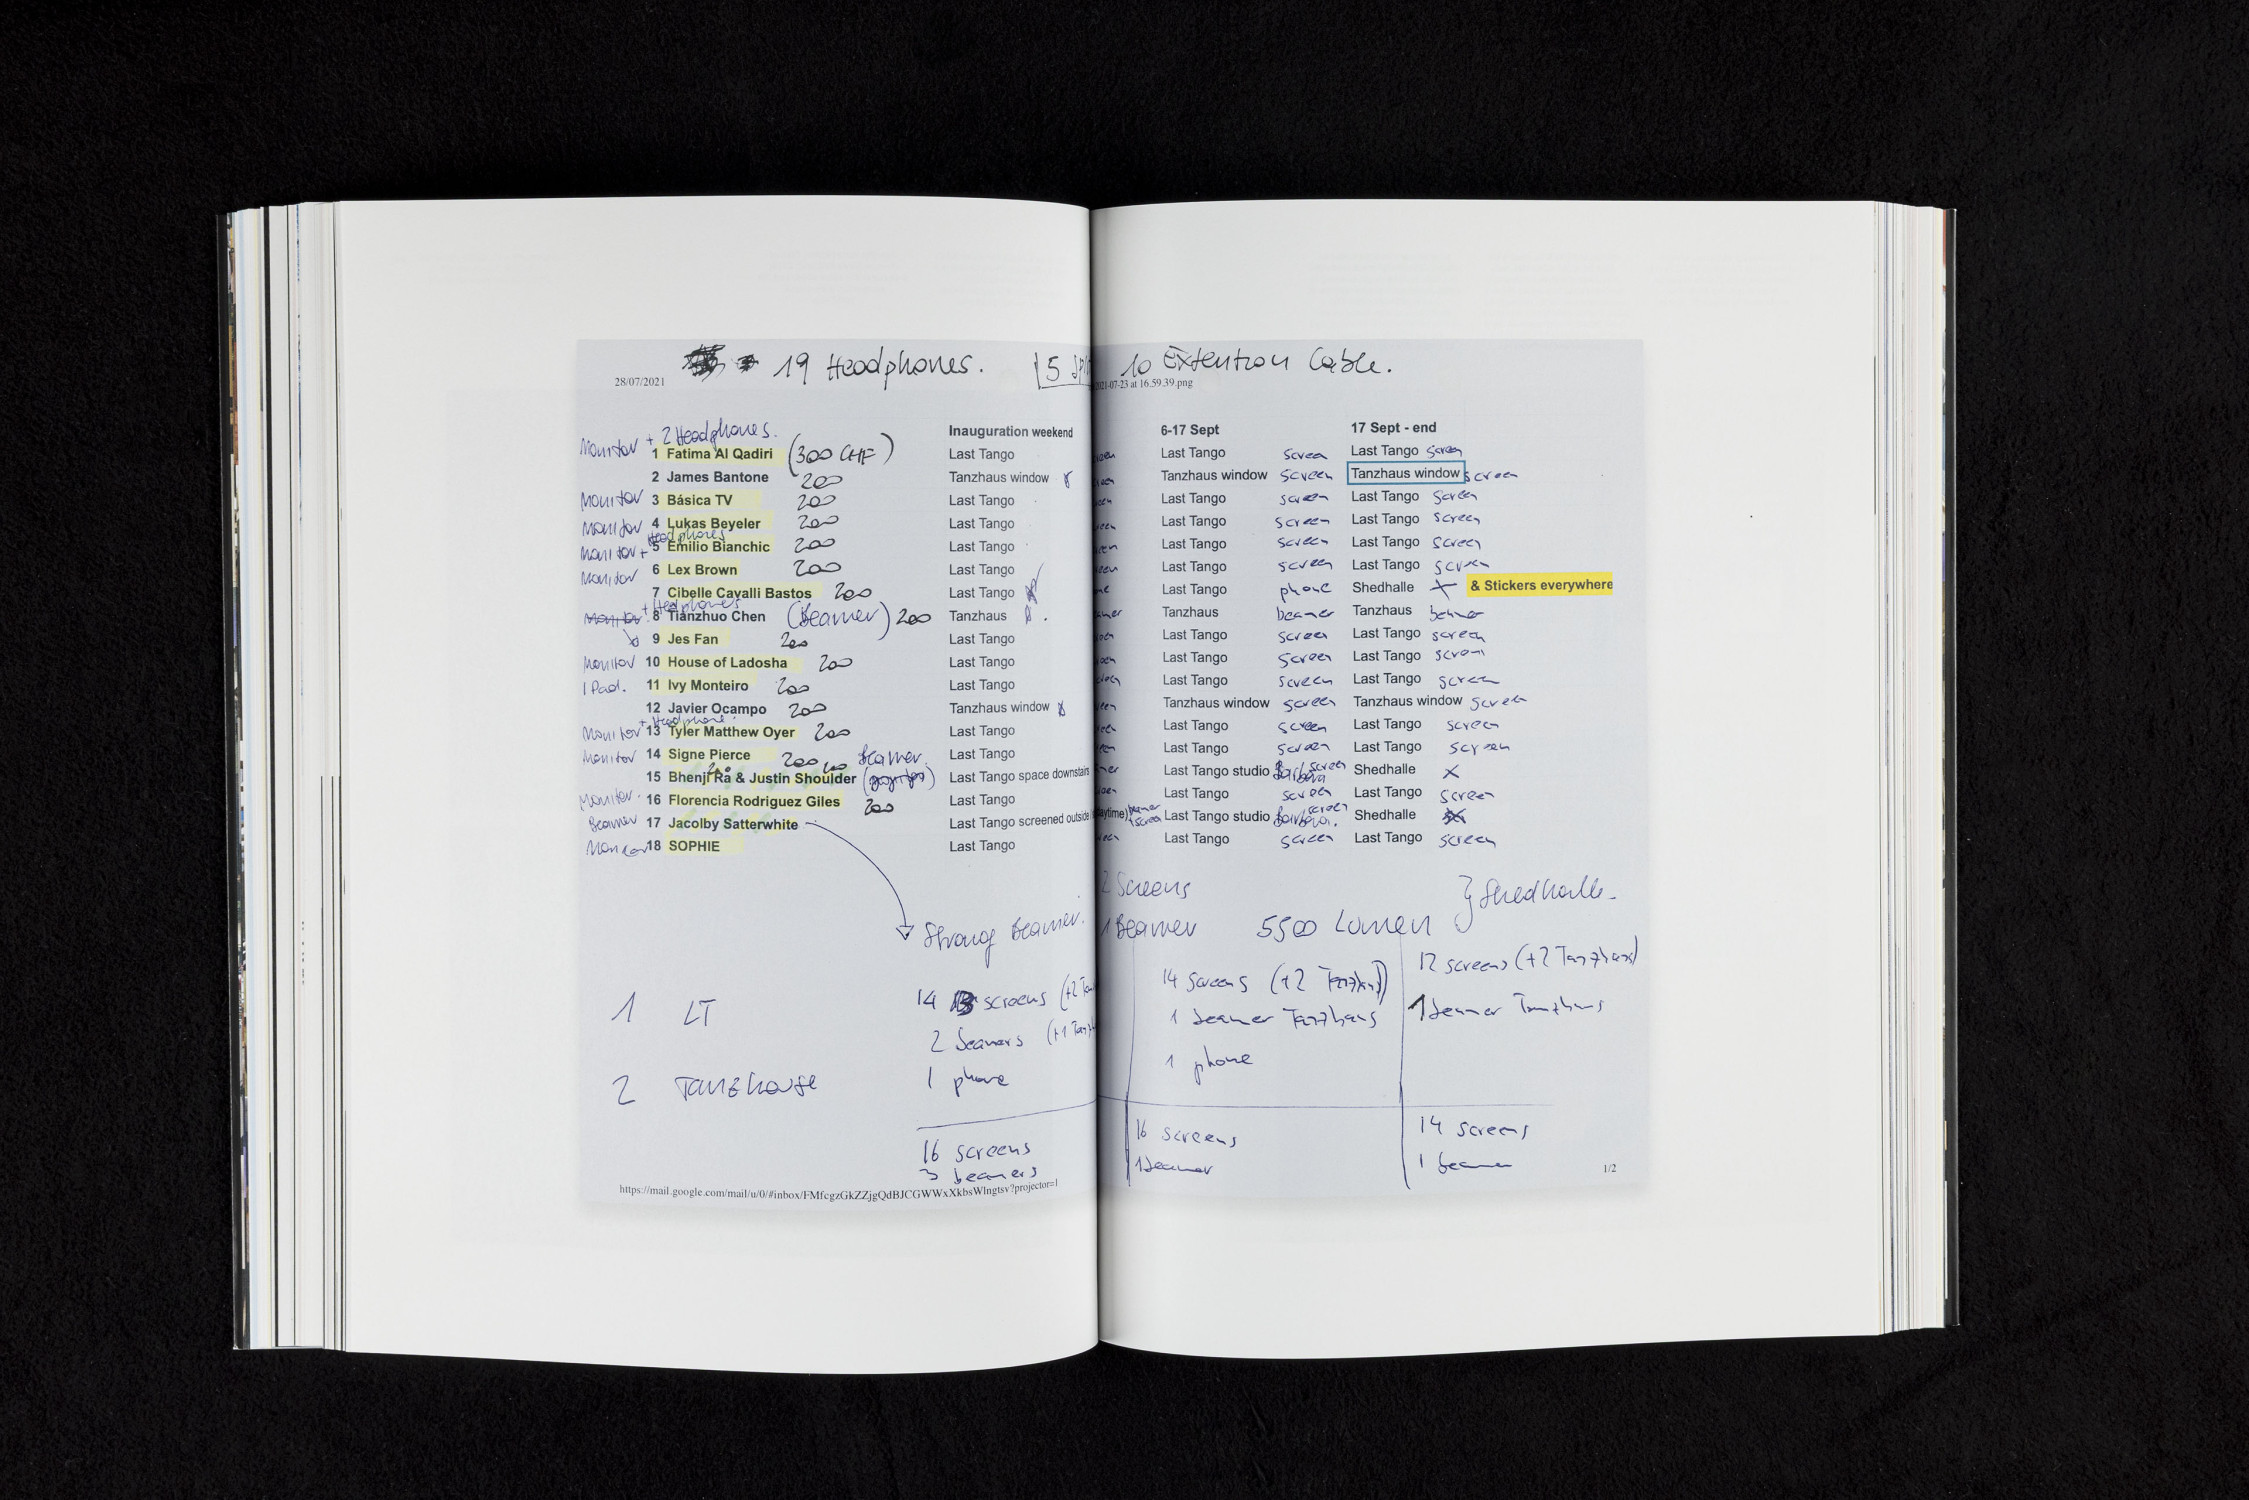 19 Headphones. 5 10 Extention Cable.
28/07/2021 2021-07-23 at 16.59.39.png
+ 2 Headphones.
Inauguration weekend 6-17 Sept 17 Sept - end
Monitor 1 Fatima Al Qadiri (300 CHF) Last Tango screen Last Tango screen Last Tango screen
2 James Bantone 200 Tanzhaus window screen Tanzhaus window screen Tanzhaus window screen
Monitor 3 Básica TV 200 Last Tango screen Last Tango screen Last Tango screen
Monitor 4 Lukas Beyeler 200 Last Tango screen Last Tango screen Last Tango screen
Headphones
Monitor + 5 Emilio Bianchic 200 Last Tango screen Last Tango screen Last Tango screen
Monitor 6 Lex Brown 200 Last Tango screen Last Tango screen Last Tango screen
7 Cibelle Cavalli Bastos 200 Last Tango Last Tango phone Shedhalle & Stickers everywhere
+ Headphones
Monitor 8 Tianzhuo Chen (Beamer) 200 Tanzhaus Tanzhaus beamer Tanzhaus beamer
9 Jes Fan 200 Last Tango Last Tango screen Last Tango screen
Monitor 10 House of Ladosha 200 Last Tango Last Tango screen Last Tango screen
1 Pad. 11 Ivy Monteiro 200 Last Tango Last Tango screen Last Tango screen
12 Javier Ocampo 200 Tanzhaus window Tanzhaus window screen Tanzhaus window screen
+ Headphone.
Monitor 13 Tyler Matthew Oyer 200 Last Tango Last Tango screen Last Tango screen
Monitor 14 Signe Pierce 200 Beamer. Last Tango Last Tango screen Last Tango screen
15 Bhenji Ra & Justin Shoulder Last Tango space downstairs Last Tango studio Barbara screen Shedhalle X
Monitor. 16 Florencia Rodriguez Giles 200 Last Tango Last Tango screen Last Tango screen
Beamer 17 Jacolby Satterwhite Last Tango screened outside daytime) beamer 1 screen Last Tango studio Barbara. screen Shedhalle
Monitor 18 SOPHIE Last Tango Last Tango screen Last Tango screen
2 Screens } Shedhalle.
Strong Beamer. 1 Beamer 5500 Lumen
1 LT 14 screens (+2 14 screens (+2 Tanzhaus) 12 screens (+2 Tanzhaus)
2 beamers (+1 1 beamer Tanzhaus 1 beamer Tanzhaus
2 Tanzhouse 1 phone 1 phone
16 screens 16 screens 14 screens
3 beamers 1 beamer 1 beamer
https://mail.google.com/mail/u/0/#inbox/FMfcgzGkZZjgQdBJCGWWxXkbsWlngtsv?projector=1 1/2